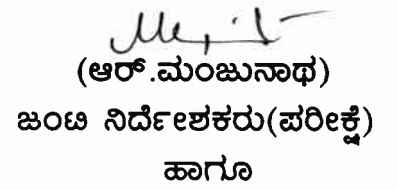 (ಆರ್.ಮಂಜುನಾಥ)
ಜಂಟಿ ನಿರ್ದೇಶಕರು(ಪರೀಕ್ಷೆ)
ಹಾಗೂ